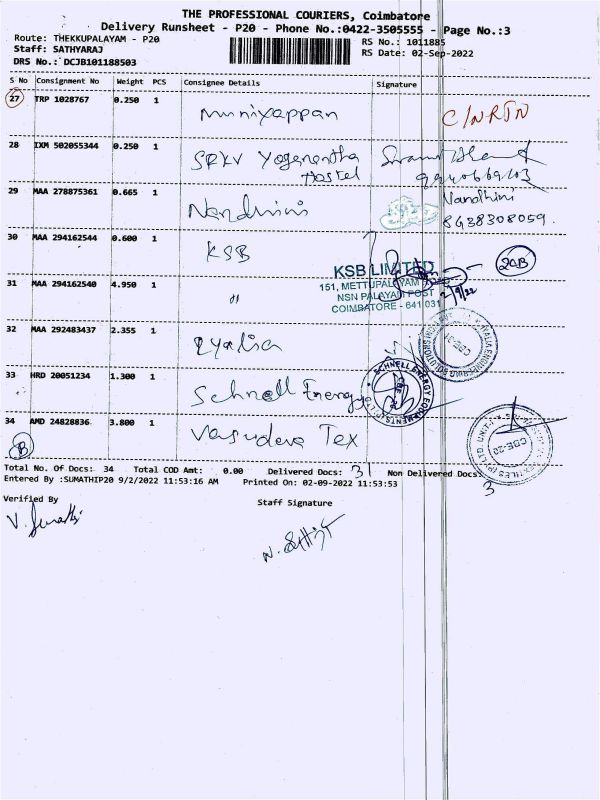 THE PROFESSIONAL COURIERS, Coimbatore
Delivery Runsheet - P20 - Phone No.:0422-3505555 - Page No.:3
Route: THEKKUPALAYAM - P20
RS No.: 1011885
Staff: SATHYARAJ
RS Date: 02-Sep-2022
DRS No.: DCJB101188503
S No Consignment No Weight PCS Consignee Details Signature
27 TRP 1028767 0.250 1 Muniyappan C/NRTN
28 IXM 502055344 0.250 1 SRKV Yogenantha
Hostel
29 MAA 278875361 0.665 1 Nandhini Nandhini
8638308059.
30 MAA 294162544 0.600 1 KSB
KSB LIMITED
151, METTUPALAYAM
NSN PALAYAM POST
COIMBATORE - 641 031
20B
2/9/22
31 MAA 294162540 4.950 1 "
32 MAA 292483437 2.355 1
33 HRD 20051234 1.300 1 Schnell Energy
SCHNELL ENERGY EQUIPMENTS (P) LTD
34 AMD 24828836 3.800 1 Vasudeva Tex
B
CBE-20
Total No. Of Docs: 34 Total COD Amt: 0.00 Delivered Docs: 31 Non Delivered Docs: 3
Entered By :SUMATHIP20 9/2/2022 11:53:16 AM Printed On: 02-09-2022 11:53:53
Verified By
Staff Signature